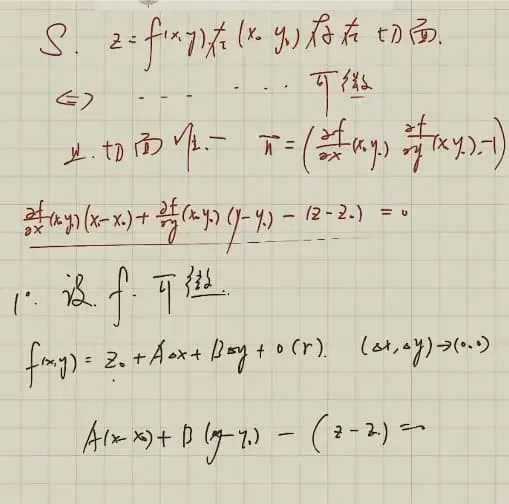 S. z=f(x,y)在(x₀ y₀)存在切面.
⇔ ... ... 可微
且.切面唯一 n̄=(∂f/∂x(x₀ y₀) ∂f/∂y(x₀ y₀),-1)
∂f/∂x(x₀ y₀)(x-x₀)+∂f/∂y(x₀ y₀)(y-y₀)-(z-z₀)=0
1°. 设.f.可微.
f(x,y)=z₀+A△x+B△y+o(r). (△x,△y)→(0,0)
A(x-x₀)+B(y-y₀)-(z-z₀)=